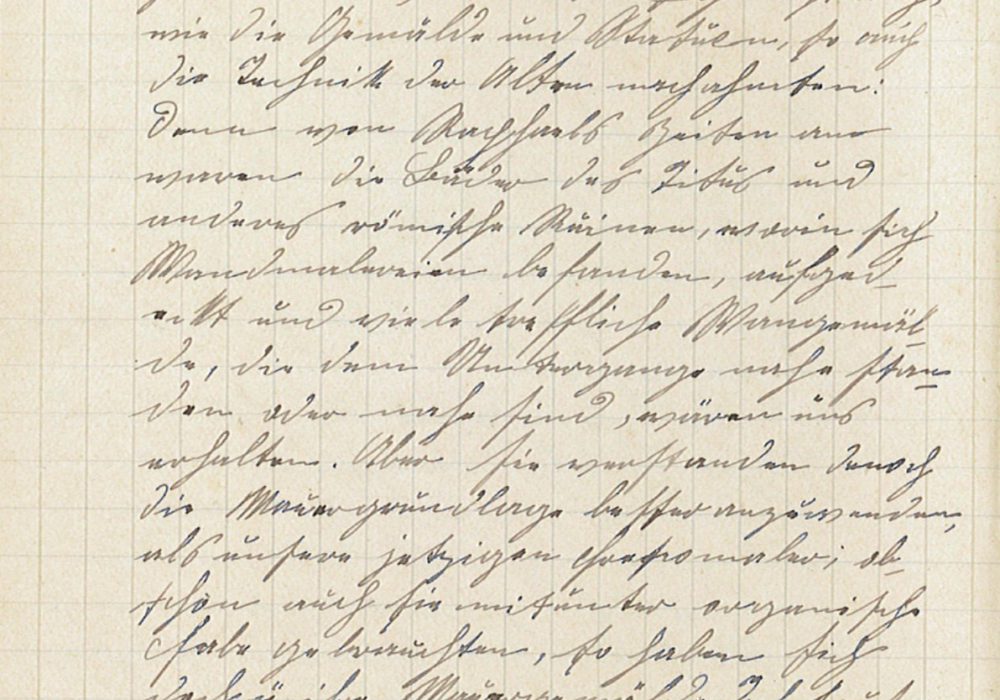 wie die Gemälde und Statuen, so auch
die Technik der Alten nachahmten:
Denn von Raphaels Zeiten an
waren die Bäder des Titus und
anderes römische Ruinen, worin sich
Wandmalereien befanden, aufged_
eckt und viele treffliche Wangemäl_
de, die dem Untergange nahe stan_
den oder nahe sind, wären uns
erhalten. Aber sie verstanden denoch
die Mauergrundlage besser anzuwenden,
als unsere jetzigen Freskomaler; ob_
schon auch sie mitunter organische
Fabe gebrauchten, so haben sich